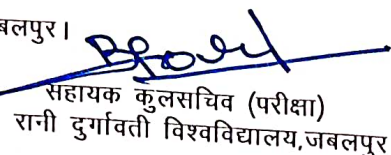 बलपुर।
सहायक कुलसचिव (परीक्षा)
रानी दुर्गावती विश्वविद्यालय,जबलपुर